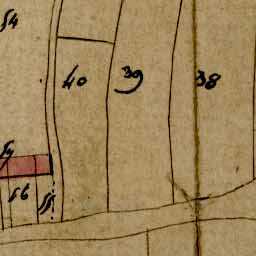 54
40 39 38
56 55